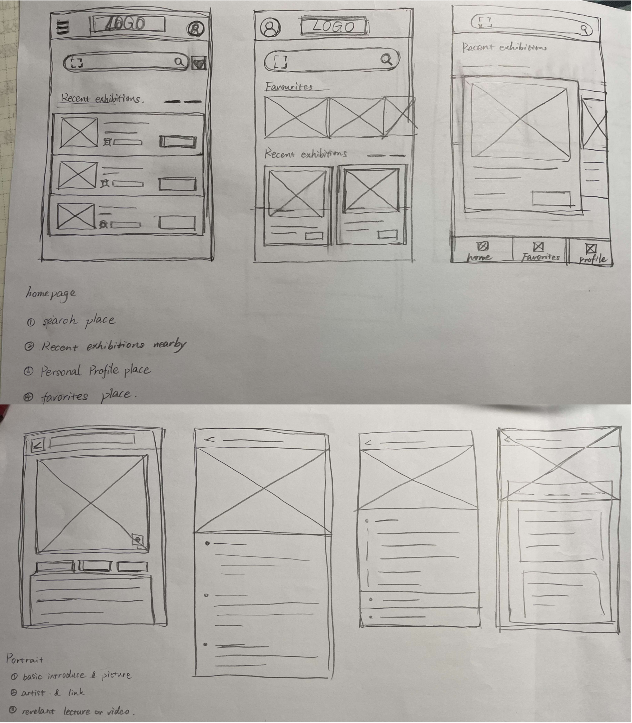 LOGO
Recent exhibitions.
LOGO
Favourites
Recent exhibitions
Recent exhibitions
home
Favorites
Profile
homepage
① search place
② Recent exhibitions nearby
③ Personal Profile place
④ favorites place.
Portrait
① basic introduce & picture
② artist & link
③ revelant lecture or video.